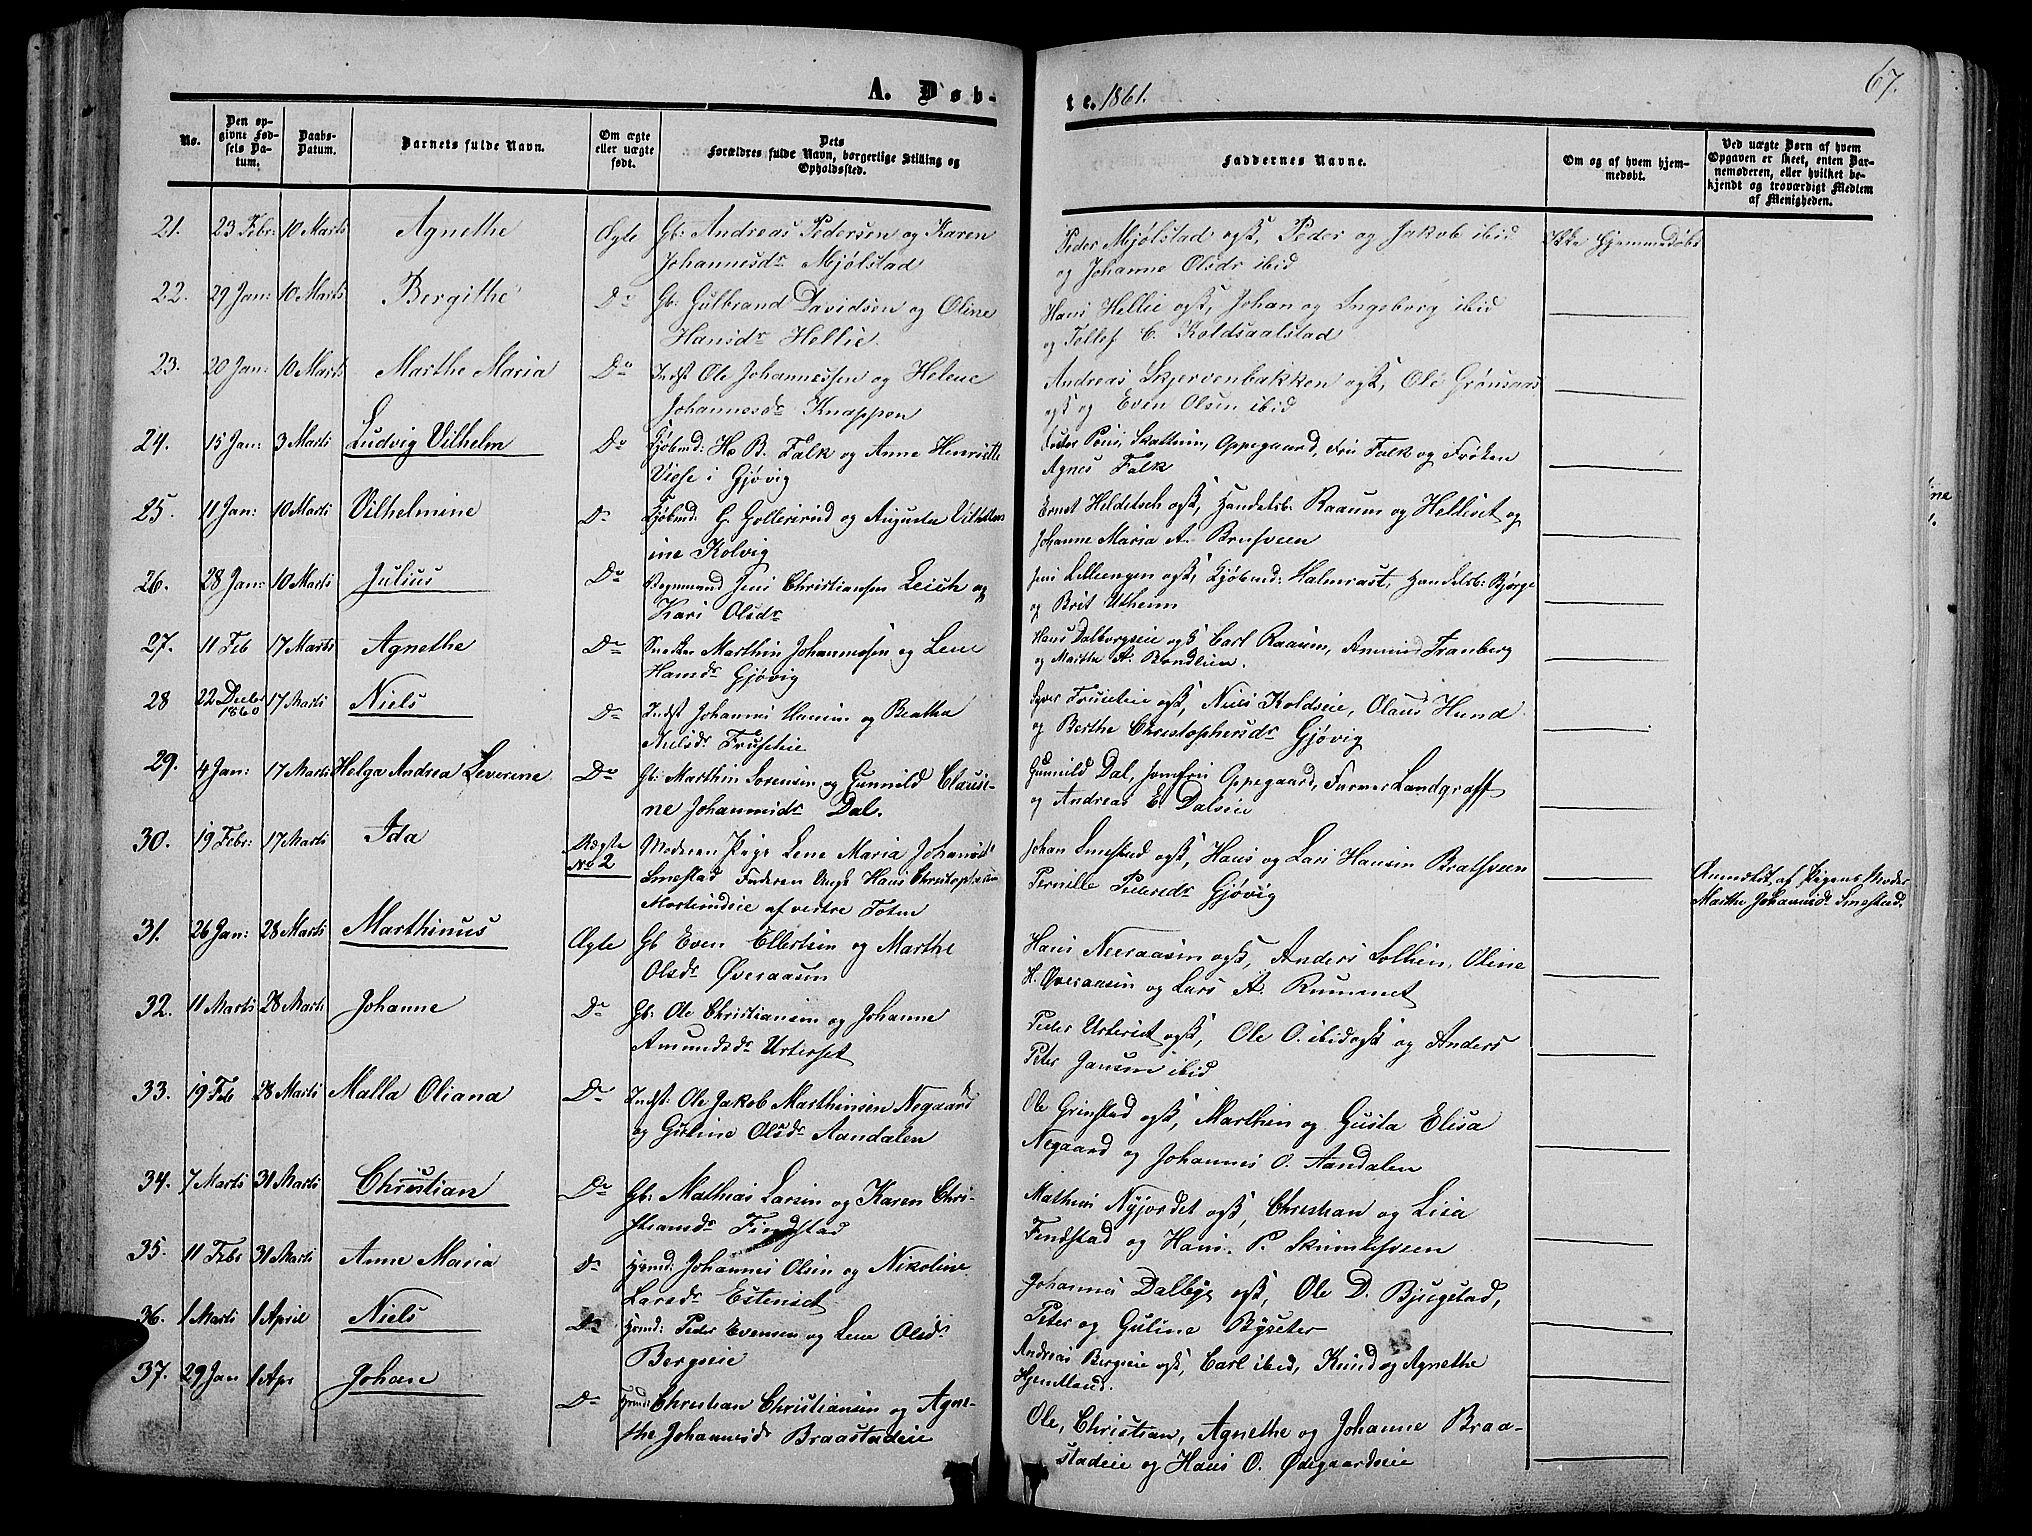 A. Døb-
te. 1861.
67.
No.
Den op-
givne Fød-
sels Da-
tum.
Daabs-
Datum.
Barnets fulde Navn.
Om ægte
eller uægte
født.
Dets
Forældres fulde Navn, borgerlige Stilling og
Opholdssted.
Faddernes Navne.
Om og af hvem hjem-
medøbt.
Ved uægte Børn af hvem
Opgaven er skeet, enten Bar-
nemoderen, eller hvilket be-
kjendt og troværdigt Medlem
af Menigheden.
21. 23 Febr: 10 Marts Agnethe Ægte Gb: Andreas Pedersen og Karen
Johannesdr Mjølstad
Peder Mjølstad ogsk, Peder og Jakob ibid
og Johanne Olsdr ibid
Ikke hjemmedøbt
22. 29 Jan: 10 Marts Bergithe Do Gb: Gulbrand Davidsen og Oline
Hansdr Hellie
Hans Hellie ogsk, Johan og Ingeborg ibid
og Tollef C. Koldsaalstad
23. 20 Jan: 10 Marts Marthe Maria Do Indst Ole Johannessen og Helene
Johannesdr Knappen
Andreas Skjervenbakken ogsk, Ole Grønsaas
ogsk og Even Olsen ibid
24. 15 Jan: 3 Marts Ludvig Vilhelm Do Kjøbmd: H. B. Falk og Anne Henriette
Viese i Gjøvig
Skattum, Oppegaard, Fru Falk og Frøken
Agnes Falk
25. 11 Jan: 10 Marts Vilhelmine Do Kjøbmd: G. Gollerud og Augusta Vilhelm
ine Kolvig
Ernst Heldetsch ogsk, Handelsb: Raaum og Hellisot og
Johanne Maria A. Brusveen
26. 28 Jan: 10 Marts Julius Do Vognmand Jens Christiansen Leich og
Kari Olsdr
Jens Lillieengen ogsk, Kjøbmd: Halmrast, Handelsb: Bjørge
og Brit Utheim
27. 11 Feb 17 Marts Agnethe Do Smeden Marthin Johannessen og Lene
Hansdr Gjøvig
Hans Dalborgseie ogsk Carl Raaum, Tranberg
og Marthe A. Bondlien.
28 22 Decbr
1860 17 Marts Niels Do Indst Johannes Hansen og Beatha
Nielsdr Fruseteie
Syver Fruseteie ogsk, Niels Koldseie, Olaus Hund
og Berthe Christophersdr Gjøvig
29. 4 Jan: 17 Marts Helga Andrea Severine Do Gb: Marthin Sorensen og Gunnild Clausi-
ne Johannesdr Dal.
Gunnild Dal, Jomfru Oppegaard, Farmer Landgraff
og Andreas E. Dalseie
30. 19 Febr: 17 Marts Ada Uægte
No 2 Moderen Pige Lene Maria Johannesdr
Smestad Faderen Ungk Hans Christophersen
Morterudeie af vestre Toten
Johan Smestad ogsk, Hans og Lars Hansen Bratsveen
Pernille Pedersdr Gjøvig
Anmeldt af Pigens Moder
Marthe Johannesdr Smestad.
31. 26 Jan: 28 Marts Marthinus Ægte Gb Even Ellertsen og Marthe
Olsdr Øveraasen
Hans Neeraasen ogsk, Anders Sollien, Oline
H. Øveraasen og Lars A. Rummet
32. 11 Marts 28 Marts Johanne Do Gb: Ole Christiansen og Johanne
Amundsdr Urterset
Peder Urterset ogsk, Ole O. ibid ogsk og Anders
Peter Jansen ibid
33. 19 Feb 28 Marts Malla Oliana Do Indst: Ole Jakob Marthinsen Negaard
og Gurine Olsdr Aandalen
Ole Grinstad ogsk, Marthin og Gusta Elisa
Negaard og Johannes O. Aandalen
34. 7 Marts 31 Marts Christian Do Gb: Mathias Larsen og Karen Chri-
stiansdr Findstad
Mathias Nyjordet ogsk, Christian og Lisa
Findstad og Hans P. Skumlesveen
35. 11 Febr 31 Marts Anne Maria Do Hrmd: Johannes Olsen og Nikoline
Larsdr Esterset
Johannes Dalbye ogsk, Ole D. Bjugstad,
Peter og Guline Ryseter
36. 1 Marts 1 April Niels Do Hrmd: Peder Evensen og Lene Olsdr
Bergseie
Andreas Bergseie ogsk, Carl ibid, Knud og Agnethe
37. 29 Jan 1 Apr Johan Do Hrmd: Christian Christiansen og Agne-
the Johannesdr Braastadeie
Ole, Christian, Agnethe og Johanne Braa-
stadeie og Hans O. Ødegaardseie